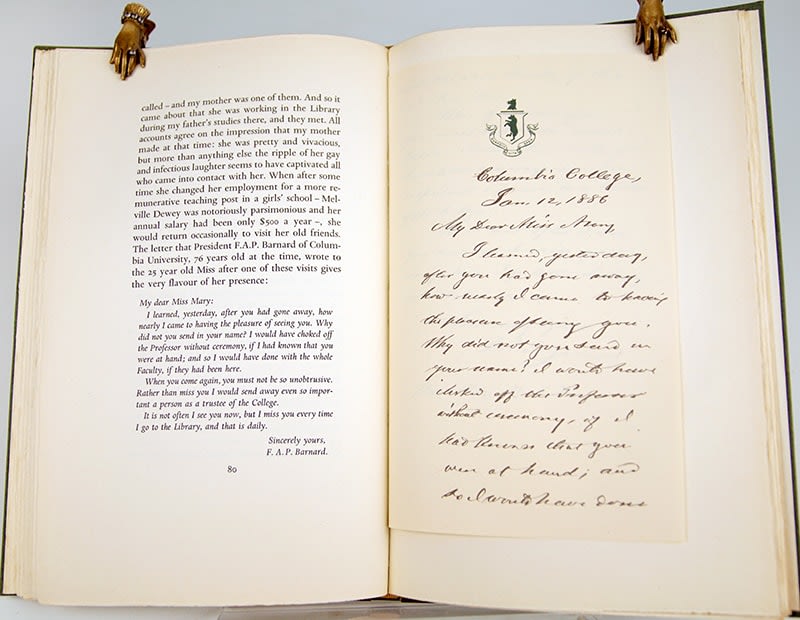 called – and my mother was one of them. And so it
came about that she was working in the Library
during my father's studies there, and they met. All
accounts agree on the impression that my mother
made at that time: she was pretty and vivacious,
but more than anything else the ripple of her gay
and infectious laughter seems to have captivated all
who came into contact with her. When after some
time she changed her employment for a more re-
munerative teaching post in a girls' school – Mel-
ville Dewey was notoriously parsimonious and her
annual salary had been only $500 a year –, she
would return occasionally to visit her old friends.
The letter that President F.A.P. Barnard of Colum-
bia University, 76 years old at the time, wrote to
the 25 year old Miss after one of these visits gives
the very flavour of her presence:
My dear Miss Mary:
I learned, yesterday, after you had gone away, how
nearly I came to having the pleasure of seeing you. Why
did not you send in your name? I would have choked off
the Professor without ceremony, if I had known that you
were at hand; and so I would have done with the whole
Faculty, if they had been here.
When you come again, you must not be so unobtrusive.
Rather than miss you I would send away even so impor-
tant a person as a trustee of the College.
It is not often I see you now, but I miss you every time
I go to the Library, and that is daily.
Sincerely yours,
F. A. P. Barnard.
80
Columbia College,
Jan. 12, 1886
My Dear Miss Mary,
I learned, yesterday,
after you had gone away,
how nearly I came to having
the pleasure of seeing you.
Why did not you send in
your name? I would have
choked off the Professor
without ceremony, if I
had known that you
were at hand; and
so I would have done